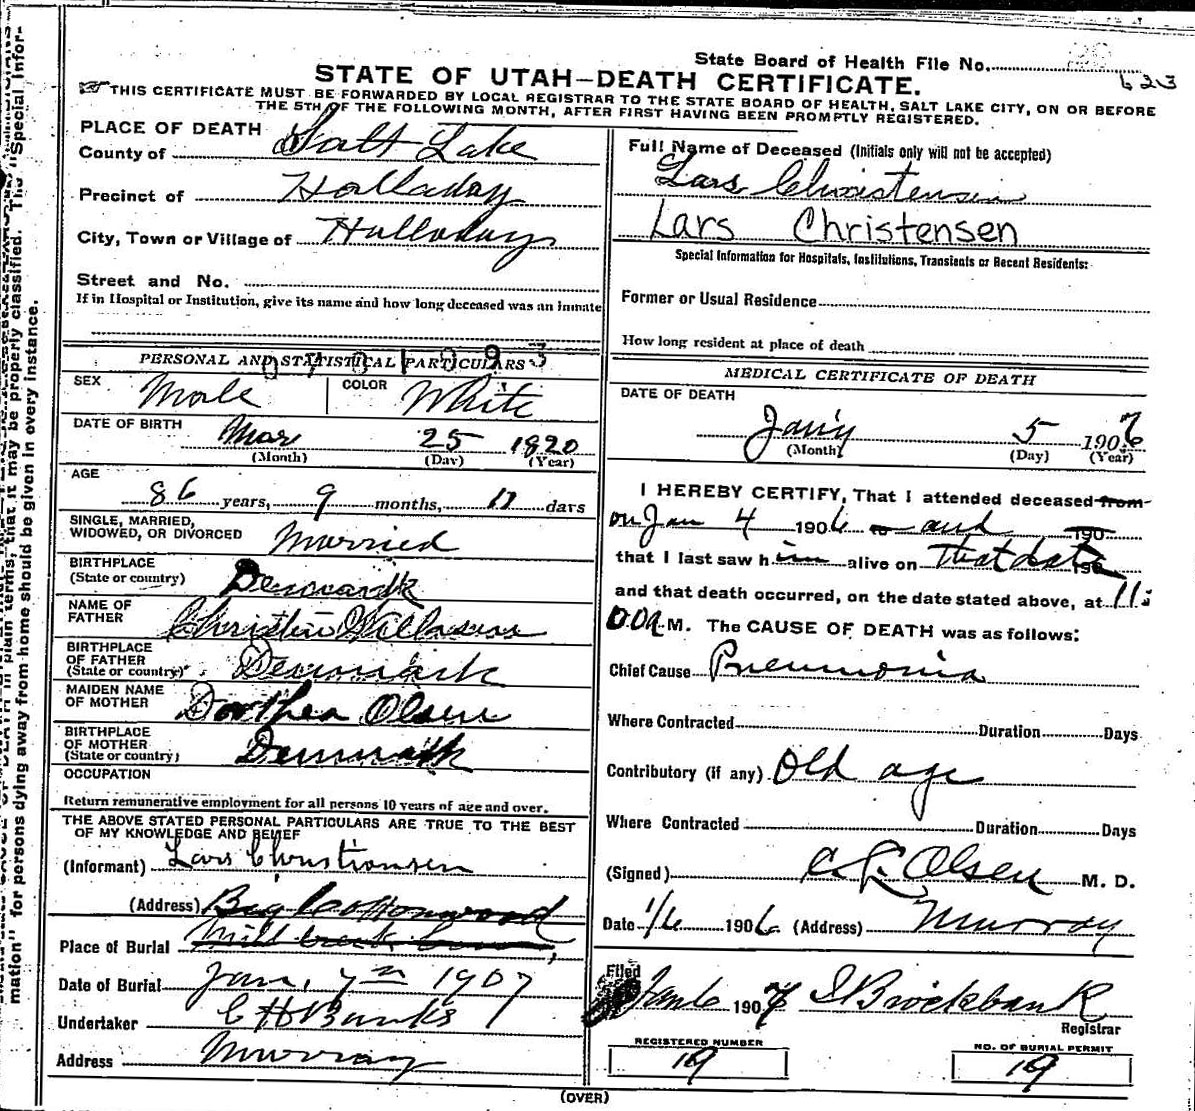 State Board of Health File No.
623
STATE OF UTAH—DEATH CERTIFICATE.
THIS CERTIFICATE MUST BE FORWARDED BY LOCAL REGISTRAR TO THE STATE BOARD OF HEALTH, SALT LAKE CITY, ON OR BEFORE
THE 5TH OF THE FOLLOWING MONTH, AFTER FIRST HAVING BEEN PROMPTLY REGISTERED.
PLACE OF DEATH
County of Salt Lake
Precinct of Holladay
City, Town or Village of Holladay
Street and No.
If in Hospital or Institution, give its name and how long deceased was an inmate
PERSONAL AND STATISTICAL PARTICULARS
SEX Male COLOR White
DATE OF BIRTH Mar 25 1820
(Month) (Day) (Year)
AGE
86 years, 9 months, 11 days
SINGLE, MARRIED,
WIDOWED, OR DIVORCED Married
BIRTHPLACE
(State or country) Denmark
NAME OF
FATHER Christen
BIRTHPLACE
OF FATHER
(State or country) Denmark
MAIDEN NAME
OF MOTHER Dorthea Olsen
BIRTHPLACE
OF MOTHER
(State or country) Denmark
OCCUPATION
Return remunerative employment for all persons 10 years of age and over.
THE ABOVE STATED PERSONAL PARTICULARS ARE TRUE TO THE BEST
OF MY KNOWLEDGE AND BELIEF
(Informant) Lars Christiansen
(Address) Big Cottonwood
Place of Burial Mill Creek
Date of Burial Jan, 7th 1907
Undertaker C H Banks
Address Murray
Full Name of Deceased (Initials only will not be accepted)
Lars Christensen
Lars Christensen
Special Information for Hospitals, Institutions, Transients or Recent Residents:
Former or Usual Residence
How long resident at place of death
MEDICAL CERTIFICATE OF DEATH
DATE OF DEATH
Jan'y 5 1907
(Month) (Day) (Year)
I HEREBY CERTIFY, That I attended deceased from
on Jan 4 1906 to and 190
that I last saw him alive on that date 190
and that death occurred, on the date stated above, at 11:
00 a M. The CAUSE OF DEATH was as follows:
Chief Cause Pneumonia
Where Contracted Duration Days
Contributory (if any) Old age
Where Contracted Duration Days
(Signed) C. L. Olsen M. D.
Date 1/6 1906 (Address) Murray
Filed Jan 6 1907 Brockbank
Registrar
REGISTERED NUMBER
19
NO. OF BURIAL PERMIT
19
(OVER)
mation" for persons dying away from home should be given in every instance.